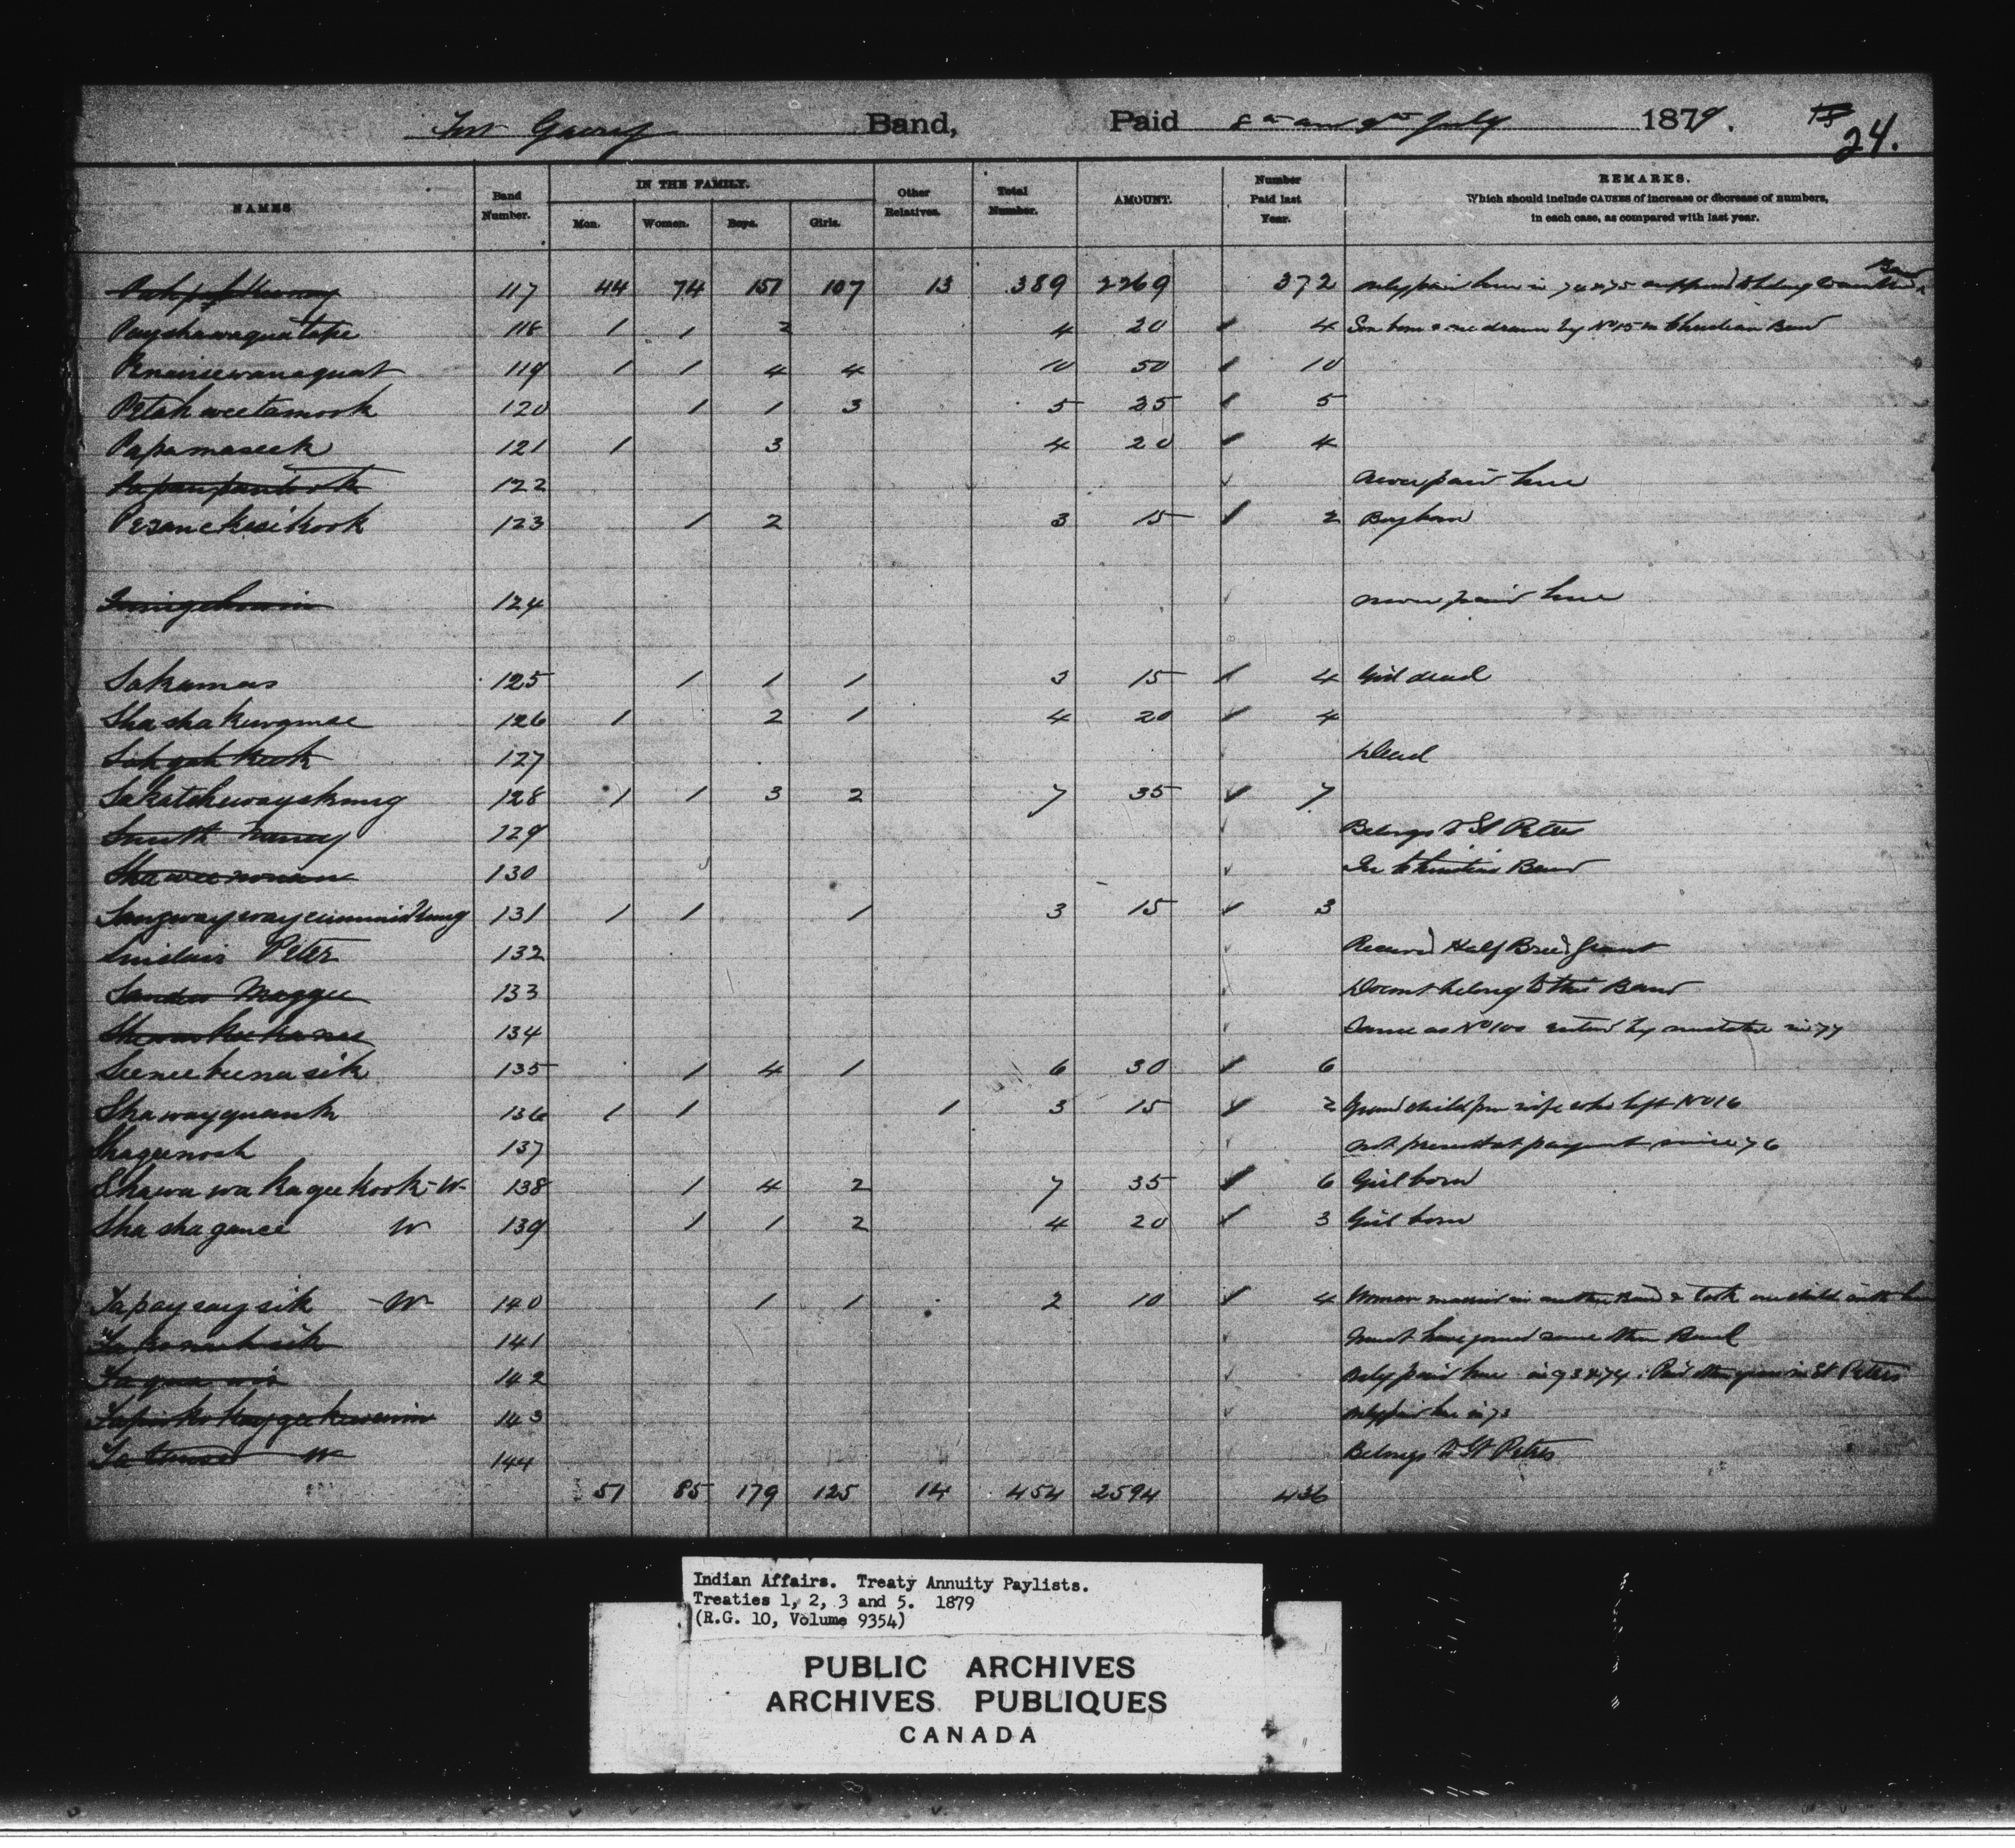 Fort Garry Band, Paid 8th and 9th July 1879. 24.
NAMES Band Number. IN THE FAMILY. Men. Women. Boys. Girls. Other Relatives. Total Number. AMOUNT. Number Paid last Year. REMARKS.
Which should include CAUSES of increase or decrease of numbers,
in each case, as compared with last year.
117 44 74 151 107 13 389 2269 372 only paid here in 74 & 75 supposed to belong to another Band
Payshawaquatope 118 1 1 2 4 20 ✓ 4 Son born & one drawn by No 15 in Christian Band
Penaiseewanaquat 119 1 1 4 4 10 50 ✓ 10
Petahweetamook 120 1 1 3 5 25 ✓ 5
Papamaseek 121 1 3 4 20 ✓ 4
122 ✓ never paid here
Pezanekesikook 123 1 2 3 15 ✓ 2 Boy born
124 ✓ never paid here
Sakamas 125 1 1 1 3 15 ✓ 4 Girl dead
Shashakewamee 126 1 2 1 4 20 ✓ 4
Sahgahkeek 127 Dead
Sakatchewayskung 128 1 1 3 2 7 35 ✓ 7
Smith Nancy 129 ✓ Belongs to St Peters
Shaweenonan 130 ✓ In Christian Band
131 1 1 1 3 15 ✓ 3
Sinclair Peter 132 ✓ Received Half Breed Grant
Maggie 133 ✓ Doesnt belong to this Band
134 ✓ Same as No 100 entered by mistake in 77
Seeneebenasik 135 1 4 1 6 30 ✓ 6
Shawayquank 136 1 1 1 3 15 ✓ 2 Grand child from wife who left No 16
Shageenash 137 ✓ not present at payment since 76
Shawawakageekook - W - 138 1 4 2 7 35 ✓ 6 Girl born
Shashagance W 139 1 1 2 4 20 ✓ 3 Girl born
Tapaysaysik - W - 140 1 1 2 10 ✓ 4 Woman married in another Band & took one child with her
141 ✓ must have joined some other Band
142 ✓ only paid here in 73 & 74. Paid other years in St Peters
143 ✓ only paid here in 73
W 144 ✓ Belongs to St Peters
51 85 179 125 14 454 2594 436
Indian Affairs. Treaty Annuity Paylists.
Treaties 1, 2, 3 and 5. 1879
(R.G. 10, Volume 9354)
PUBLIC ARCHIVES
ARCHIVES PUBLIQUES
CANADA